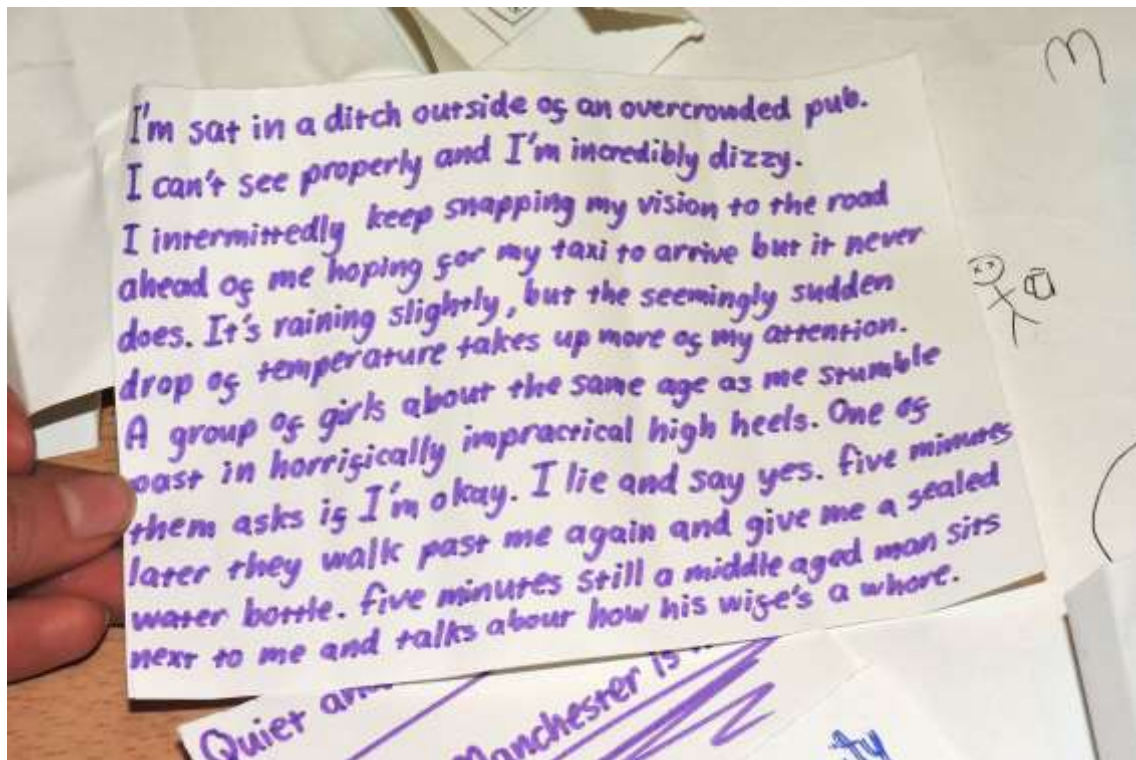 I'm sat in a ditch outside of an overcrowded pub.
I can't see properly and I'm incredibly dizzy.
I intermittedly keep snapping my vision to the road
ahead of me hoping for my taxi to arrive but it never
does. It's raining slightly, but the seemingly sudden
drop of temperature takes up more of my attention.
A group of girls about the same age as me stumble
past in horrifically impractical high heels. One of
them asks if I'm okay. I lie and say yes. five minutes
later they walk past me again and give me a sealed
water bottle. five minutes still a middle aged man sits
next to me and talks about how his wife's a whore.
Quiet and
Manchester is